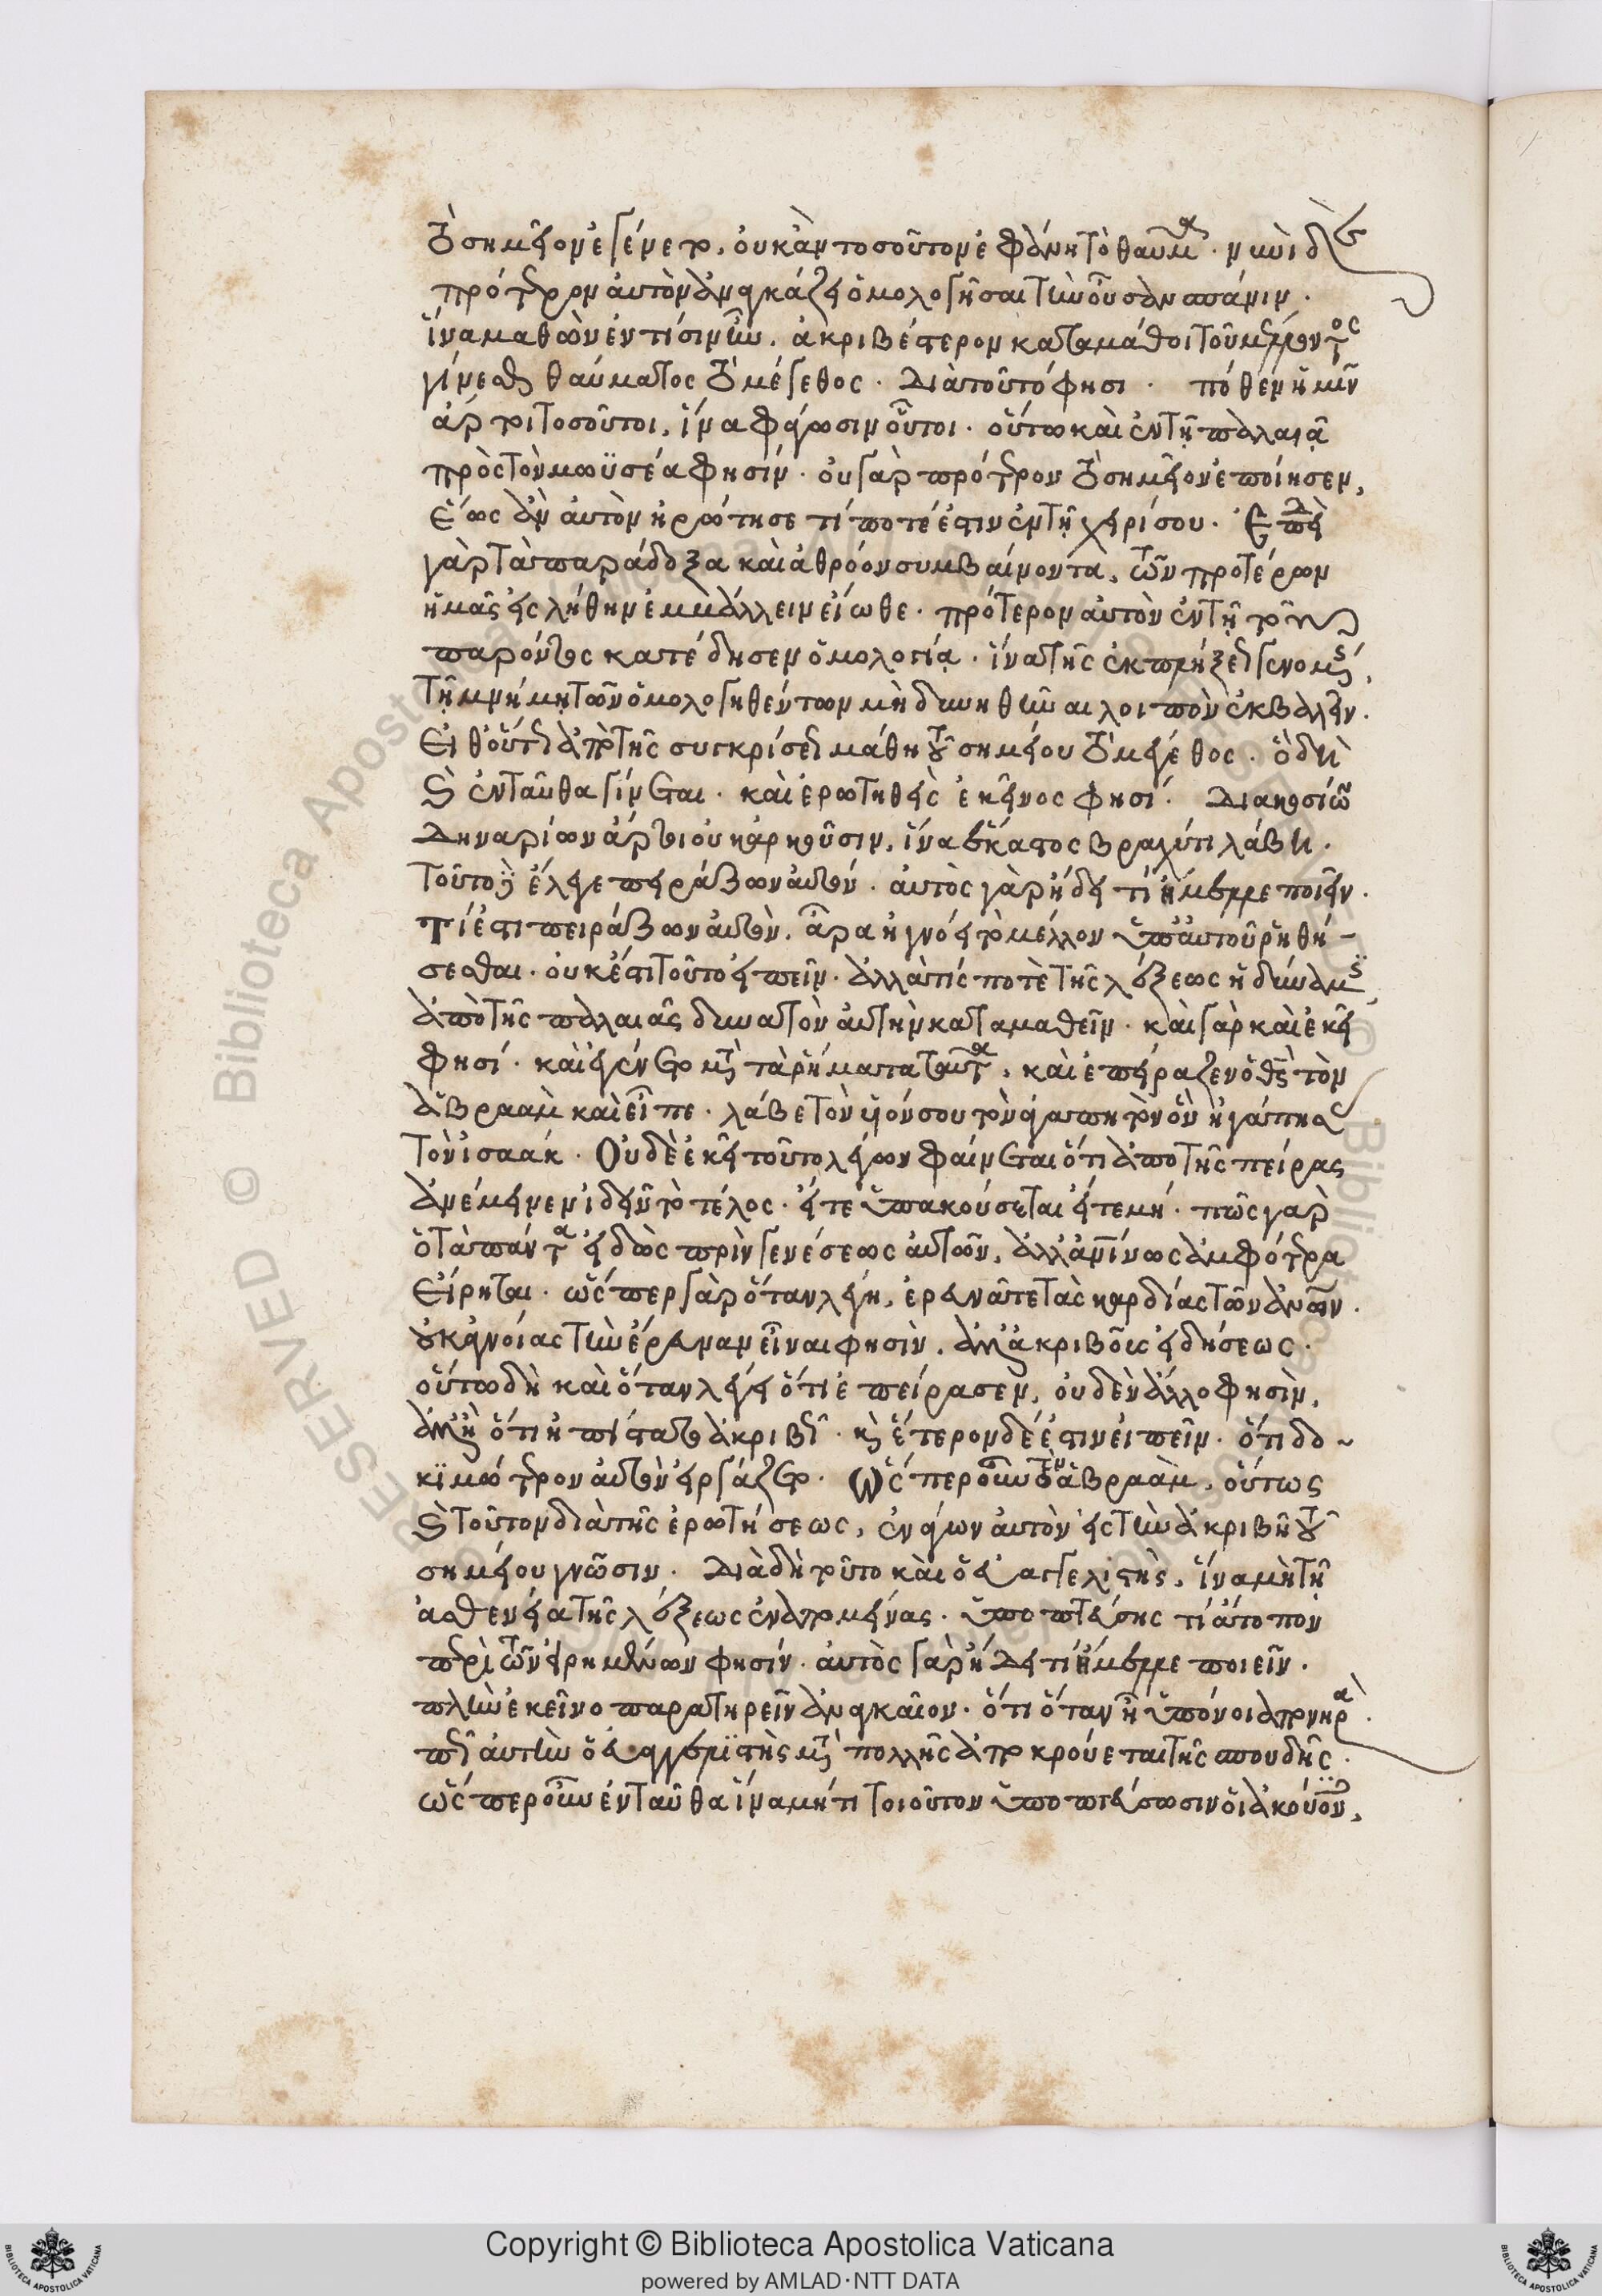 τὸ σημεῖον ἐγένετο, οὐκ ἂν τοσοῦτον ἐφάνη τὸ θαῦμα. νυνὶ δὲ
πρότερον αὐτὸν ἀναγκάζει ὁμολογῆσαι τὴν οὖσαν σπάνιν.
ἵνα μαθὼν ἐν τίσιν ἦν, ἀκριβέστερον καταμάθοι τοῦ μέλλοντος
γίνεσθαι θαύματος τὸ μέγεθος. Διὰ τοῦτό φησι. πόθεν ἡμῖν
ἄρτοι τοσοῦτοι, ἵνα φάγωσιν οὗτοι. οὕτω καὶ ἐν τῇ παλαιᾷ
πρὸς τὸν μωϋσέα φησίν. οὐ γὰρ πρότερον τὸ σημεῖον ἐποίησεν,
ἕως ἂν αὐτὸν ἠρώτησε τί ποτέ ἐστιν ἐν τῇ χειρί σου. Ἐπειδὴ
γὰρ τὰ παράδοξα καὶ ἀθρόον συμβαίνοντα, τῶν προτέρων
ἡμᾶς εἰς λήθην ἐμβάλλειν εἴωθε. πρότερον αὐτὸν ἐν τῇ τοῦ
παρόντος κατέδησεν ὁμολογίᾳ. ἵνα τῆς ἐκπλήξεως γενομένης,
τῇ μνήμῃ τῶν ὁμολογηθέντων μὴ δυνηθῆναι λοιπὸν ἐκβαλεῖν.
Εἶθ' οὕτως ἀπὸ τῆς συγκρίσεως μάθῃ τοῦ σημείου τὸ μέγεθος. ὃ δὴ
καὶ ἐνταῦθα γίνεται. καὶ ἐρωτηθεὶς ἐκεῖνός φησί. Διακοσίων
δηναρίων ἄρτοι οὐκ ἀρκοῦσιν, ἵνα ἕκαστος βραχύ τι λάβῃ.
Τοῦτο δὲ ἔλεγε πειράζων αὐτόν. αὐτὸς γὰρ ᾔδει τί ἤμελλε ποιεῖν.
Τί ἐστι πειράζων αὐτόν. ἆρα ἠγνόει τὸ μέλλον ὑπ' αὐτοῦ ῥηθή-
σεσθαι. οὐκ ἔστι τοῦτο εἰπεῖν. ἀλλὰ τίς ποτὲ τῆς λέξεως ἡ δύναμις
ἀπὸ τῆς παλαιᾶς δυνατὸν αὐτὴν καταμαθεῖν. καὶ γὰρ καὶ ἐκεῖ
φησί. καὶ ἐγένετο μετὰ τὰ ῥήματα ταῦτα, καὶ ἐπείραζεν ὁ θεὸς τὸν
ἀβραὰμ καὶ εἶπε. λάβε τὸν υἱόν σου τὸν ἀγαπητὸν ὃν ἠγάπησας
τὸν ἰσαάκ. Οὐδὲ ἐκεῖ τοῦτο λέγων φαίνεται ὅτι ἀπὸ τῆς πείρας
ἀνέμεινεν ἰδεῖν τὸ τέλος. εἴτε ὑπακούσεται εἴτε μή. πῶς γὰρ
ὁ τὰ πάντα εἰδὼς πρὶν γενέσεως αὐτῶν, ἀλλ' ἀνθρωπίνως ἀμφότερα
εἴρηται. ὥσπερ γὰρ ὅταν λέγῃ, ἐρευνᾶτε τὰς καρδίας τῶν ἀνθρώπων.
οὐκ ἀγνοίας τὴν ἔρευναν εἶναι φησὶν, ἀλλ' ἀκριβοῦς εἰδήσεως.
οὕτω δὴ καὶ ὅταν λέγει ὅτι ἐπείρασεν, οὐδὲν ἄλλο φησὶν,
ἀλλ' ἢ ὅτι ἠπίστατο ἀκριβῶς. καὶ ἕτερον δέ ἐστιν εἰπεῖν. ὅτι δο-
κιμώτερον αὐτὸν εἰργάζετο. Ὥσπερ οὖν τότε τὸν ἀβραὰμ, οὕτως
καὶ τοῦτον διὰ τῆς ἐρωτήσεως, ἐνάγων αὐτὸν εἰς τὴν ἀκριβῆ τοῦ
σημείου γνῶσιν. Διὰ δὴ τοῦτο καὶ ὁ εὐαγγελιστὴς, ἵνα μὴ τῇ
ἀσθενείᾳ τῆς λέξεως ἐναπομείνας. ὑποπτεύσῃς τι ἄτοπον
περὶ τῶν εἰρημένων φησίν. αὐτὸς γὰρ ᾔδει τί ἤμελλε ποιεῖν.
πλὴν ἐκεῖνο παρατηρεῖν ἀναγκαῖον. ὅτι ὅταν ᾖ ὑπόνοιά πονηρὰ.
περὶ αὐτὴν ὁ εὐαγγελιστὴς μετὰ πολλῆς ἀποκρούεται τῆς σπουδῆς.
ὥσπερ οὖν ἐνταῦθα ἵνα μή τι τοιοῦτον ὑποπτεύσωσιν οἱ ἀκούοντες,
Copyright © Biblioteca Apostolica Vaticana
powered by AMLAD·NTT DATA